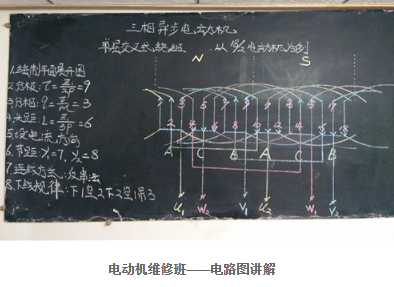 三相异步电动机
单层交叉式绕组 以18/2电动机为例
N S
1.绘制平面展开图
2.分极:τ=Z/2P=9
3.分相:q= =3
4. 距:L= =6
5.设电流方向
6.节距:Y₁=7、Y₂=8
7.连线方法:反串法
8.下线规律:下1空2下2空1吊3
A C B A C B
U₁ W₂ V₁ U₂ W₁ V₂
电动机维修班——电路图讲解